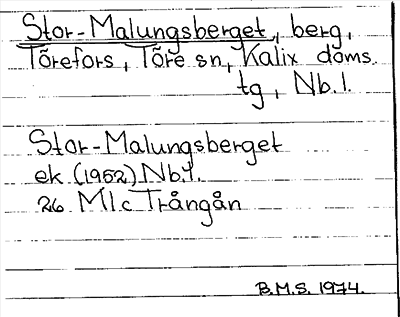 Stor-Malungsberget, berg,
Törefors, Töre sn, Kalix doms.
tg, Nb.l.
Stor-Malungsberget
ek (1952) Nb.l.
26 M1c Trångån
B.M.S. 1974.